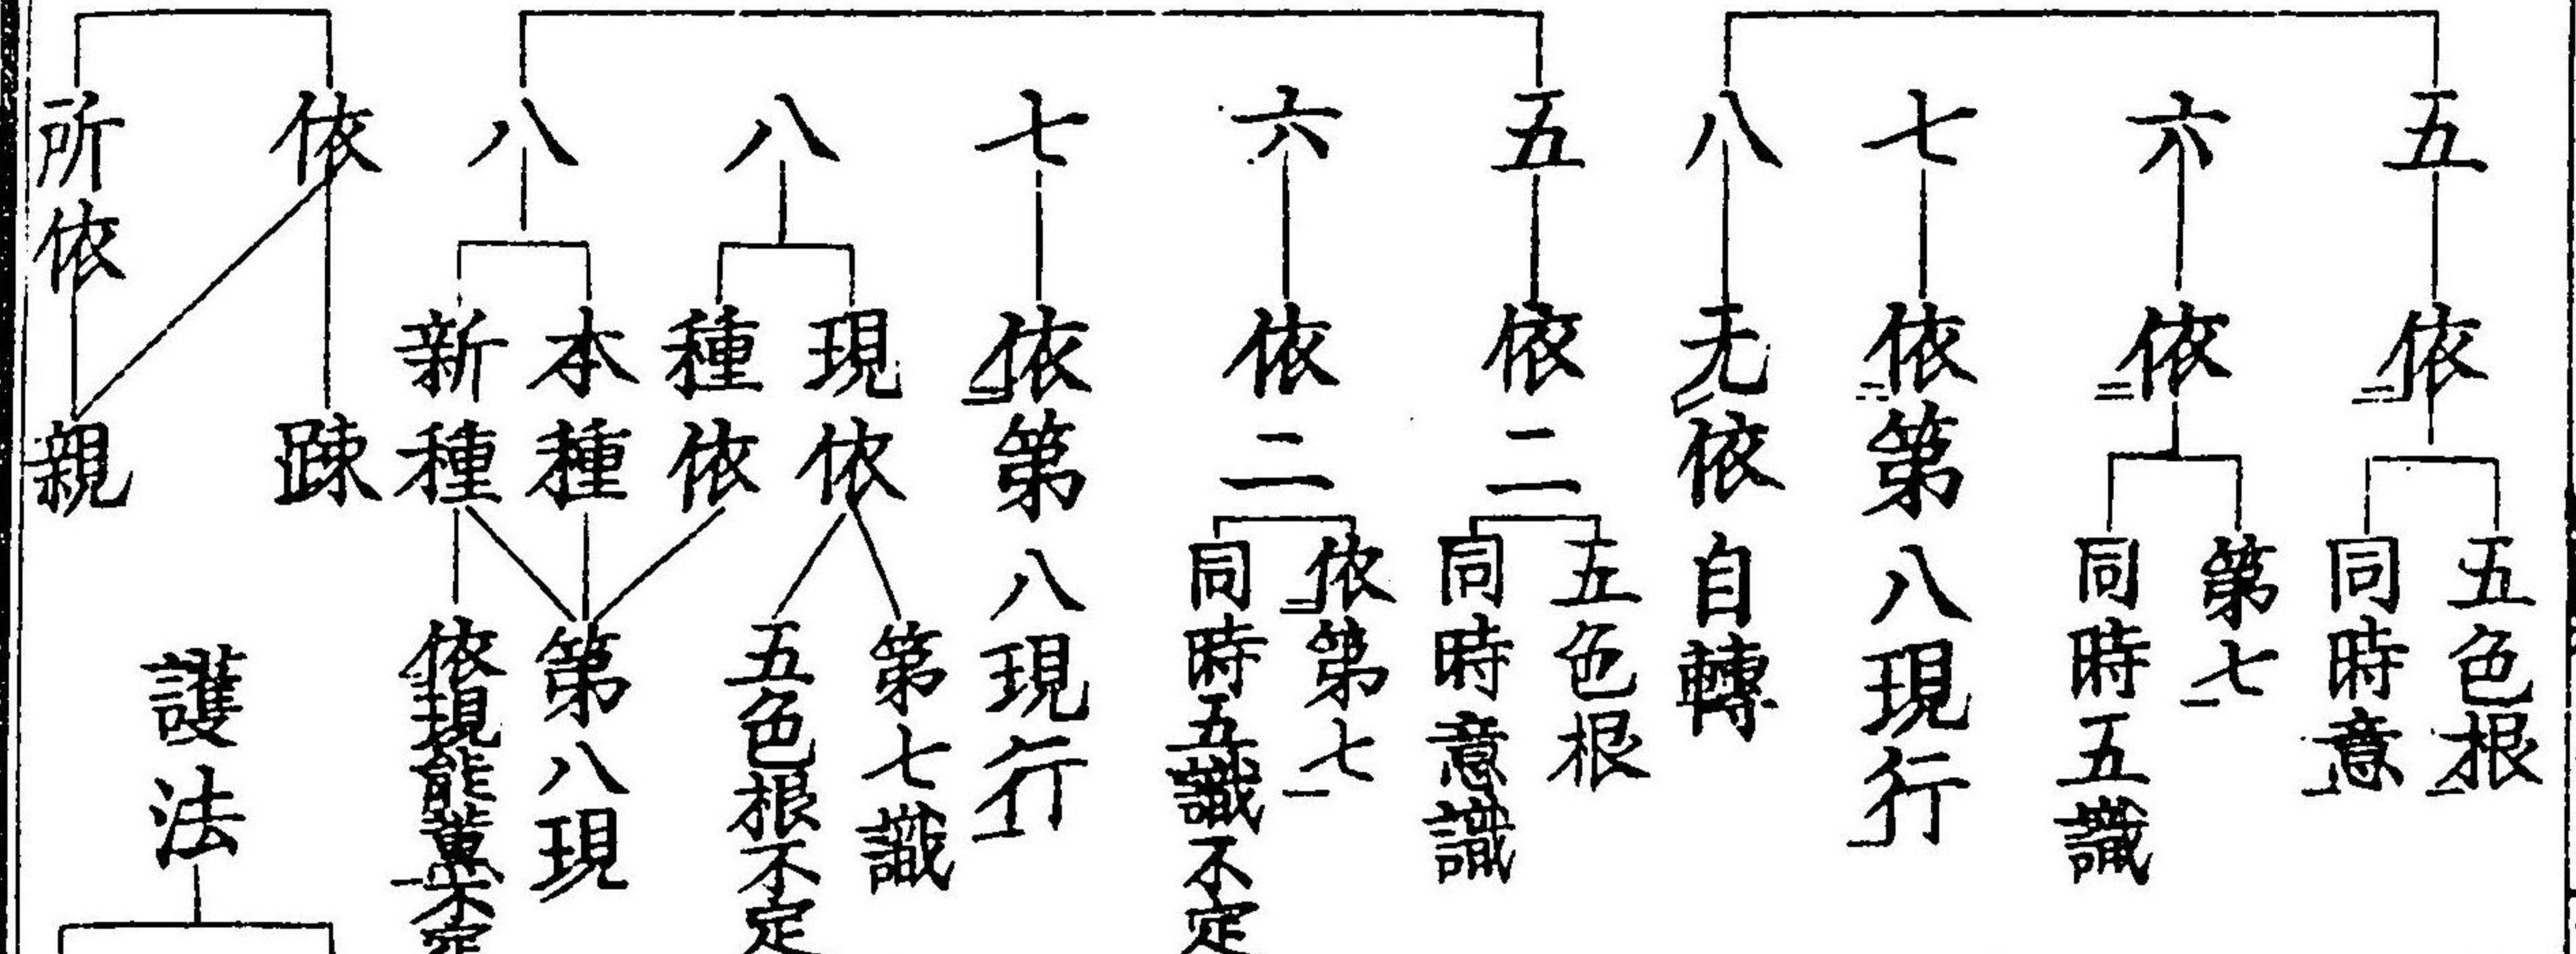 五
依二
五色根一
同時意一
六
依二
第七一
同時五識
七
依二第八現行一
八
无レ依自轉
五
依二
五色根
同時意識
六
依二
依二第七一
同時五識不定
七
依二第八現行一
八
現依
第七識
五色根不定
種依
八
本種
第八現
新種
依現能薰不定
依
疎
所依
親
護法